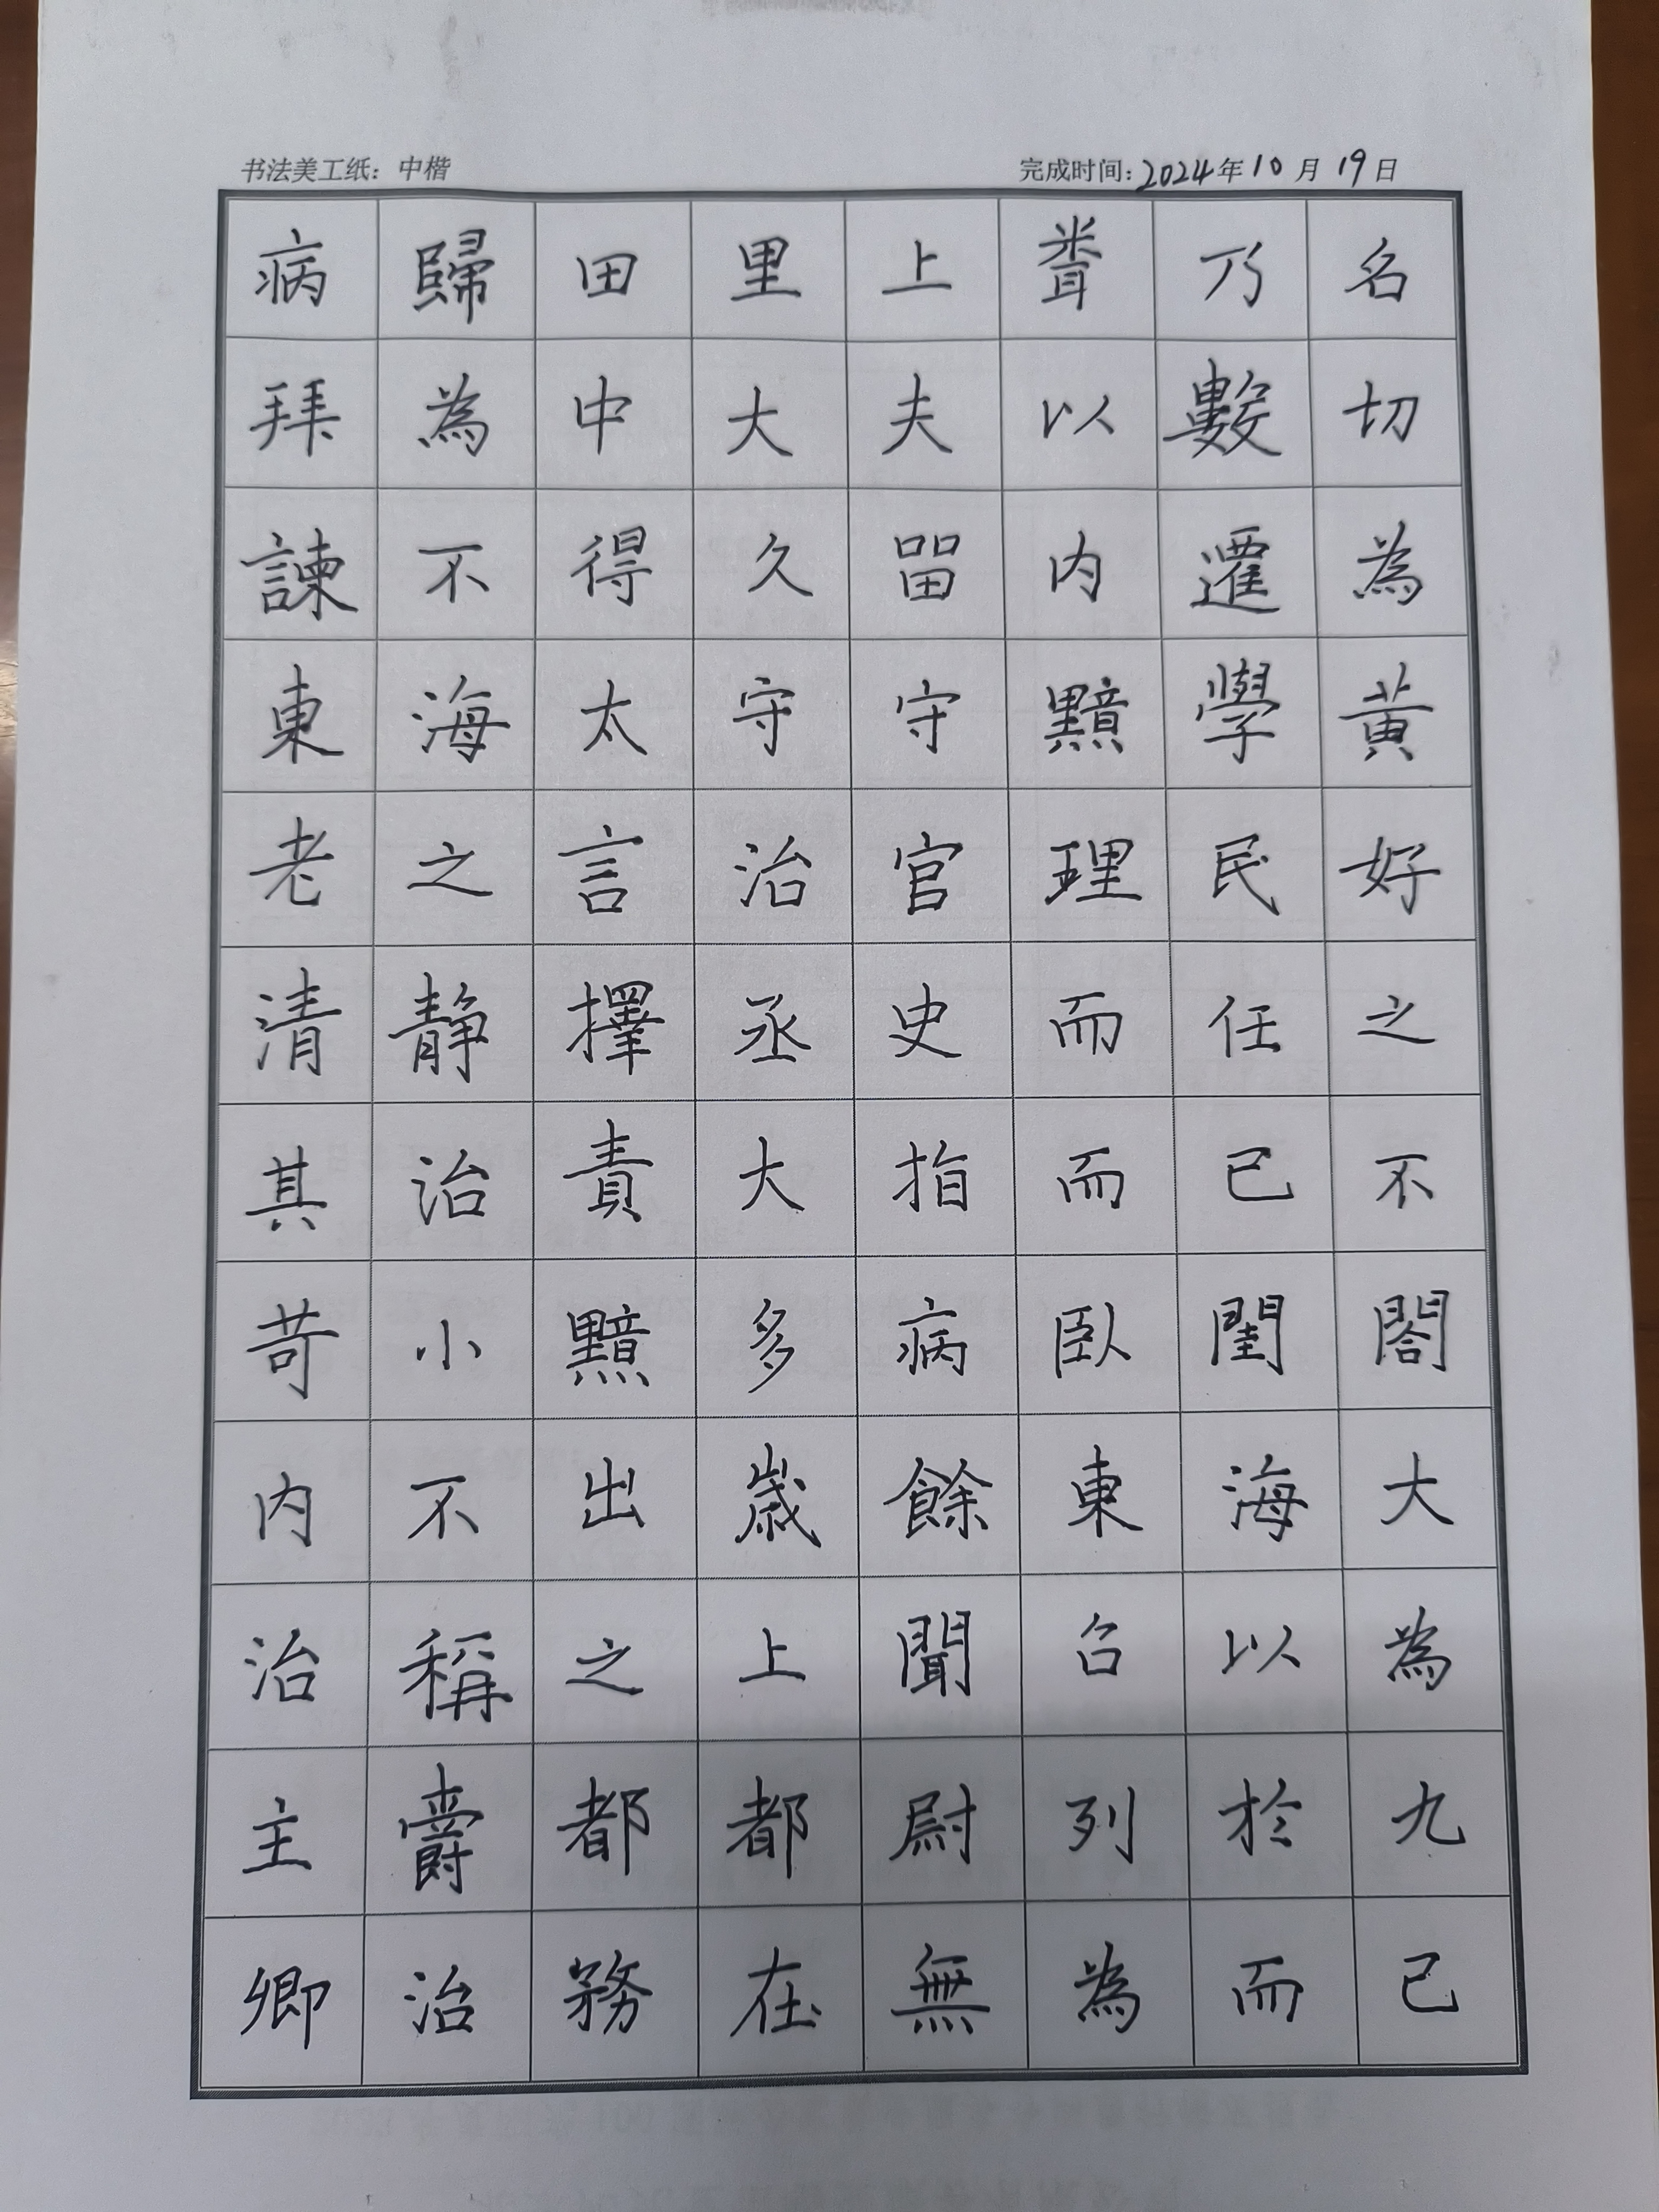 书法美工纸：中楷
完成时间：2024年10月19日
病歸田里上聞乃名
拜為中大夫以數切
諫不得久留内遷為
東海太守守黯學黃
老之言治官理民好
清靜擇丞史而任之
其治責大指而已不
苛小黯多病臥閨閤
内不出歲餘東海大
治稱之上聞召以為
主爵都都尉列於九
卿治務在無為而已